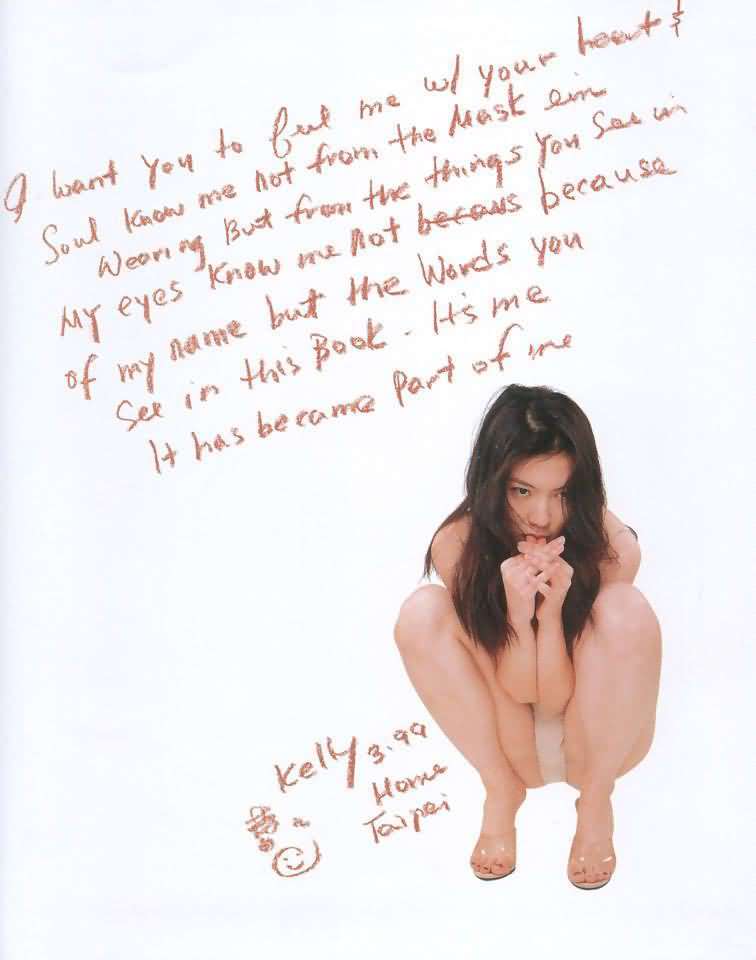 I want you to feel me w/ your heart &
Soul know me not from the Mask eim
Wearing But from the things you see in
My eyes know me not becaus because
of my name but the Words you
See in this Book. It's me
It has became Part of me
Kelly 3.99
Home
Taipei